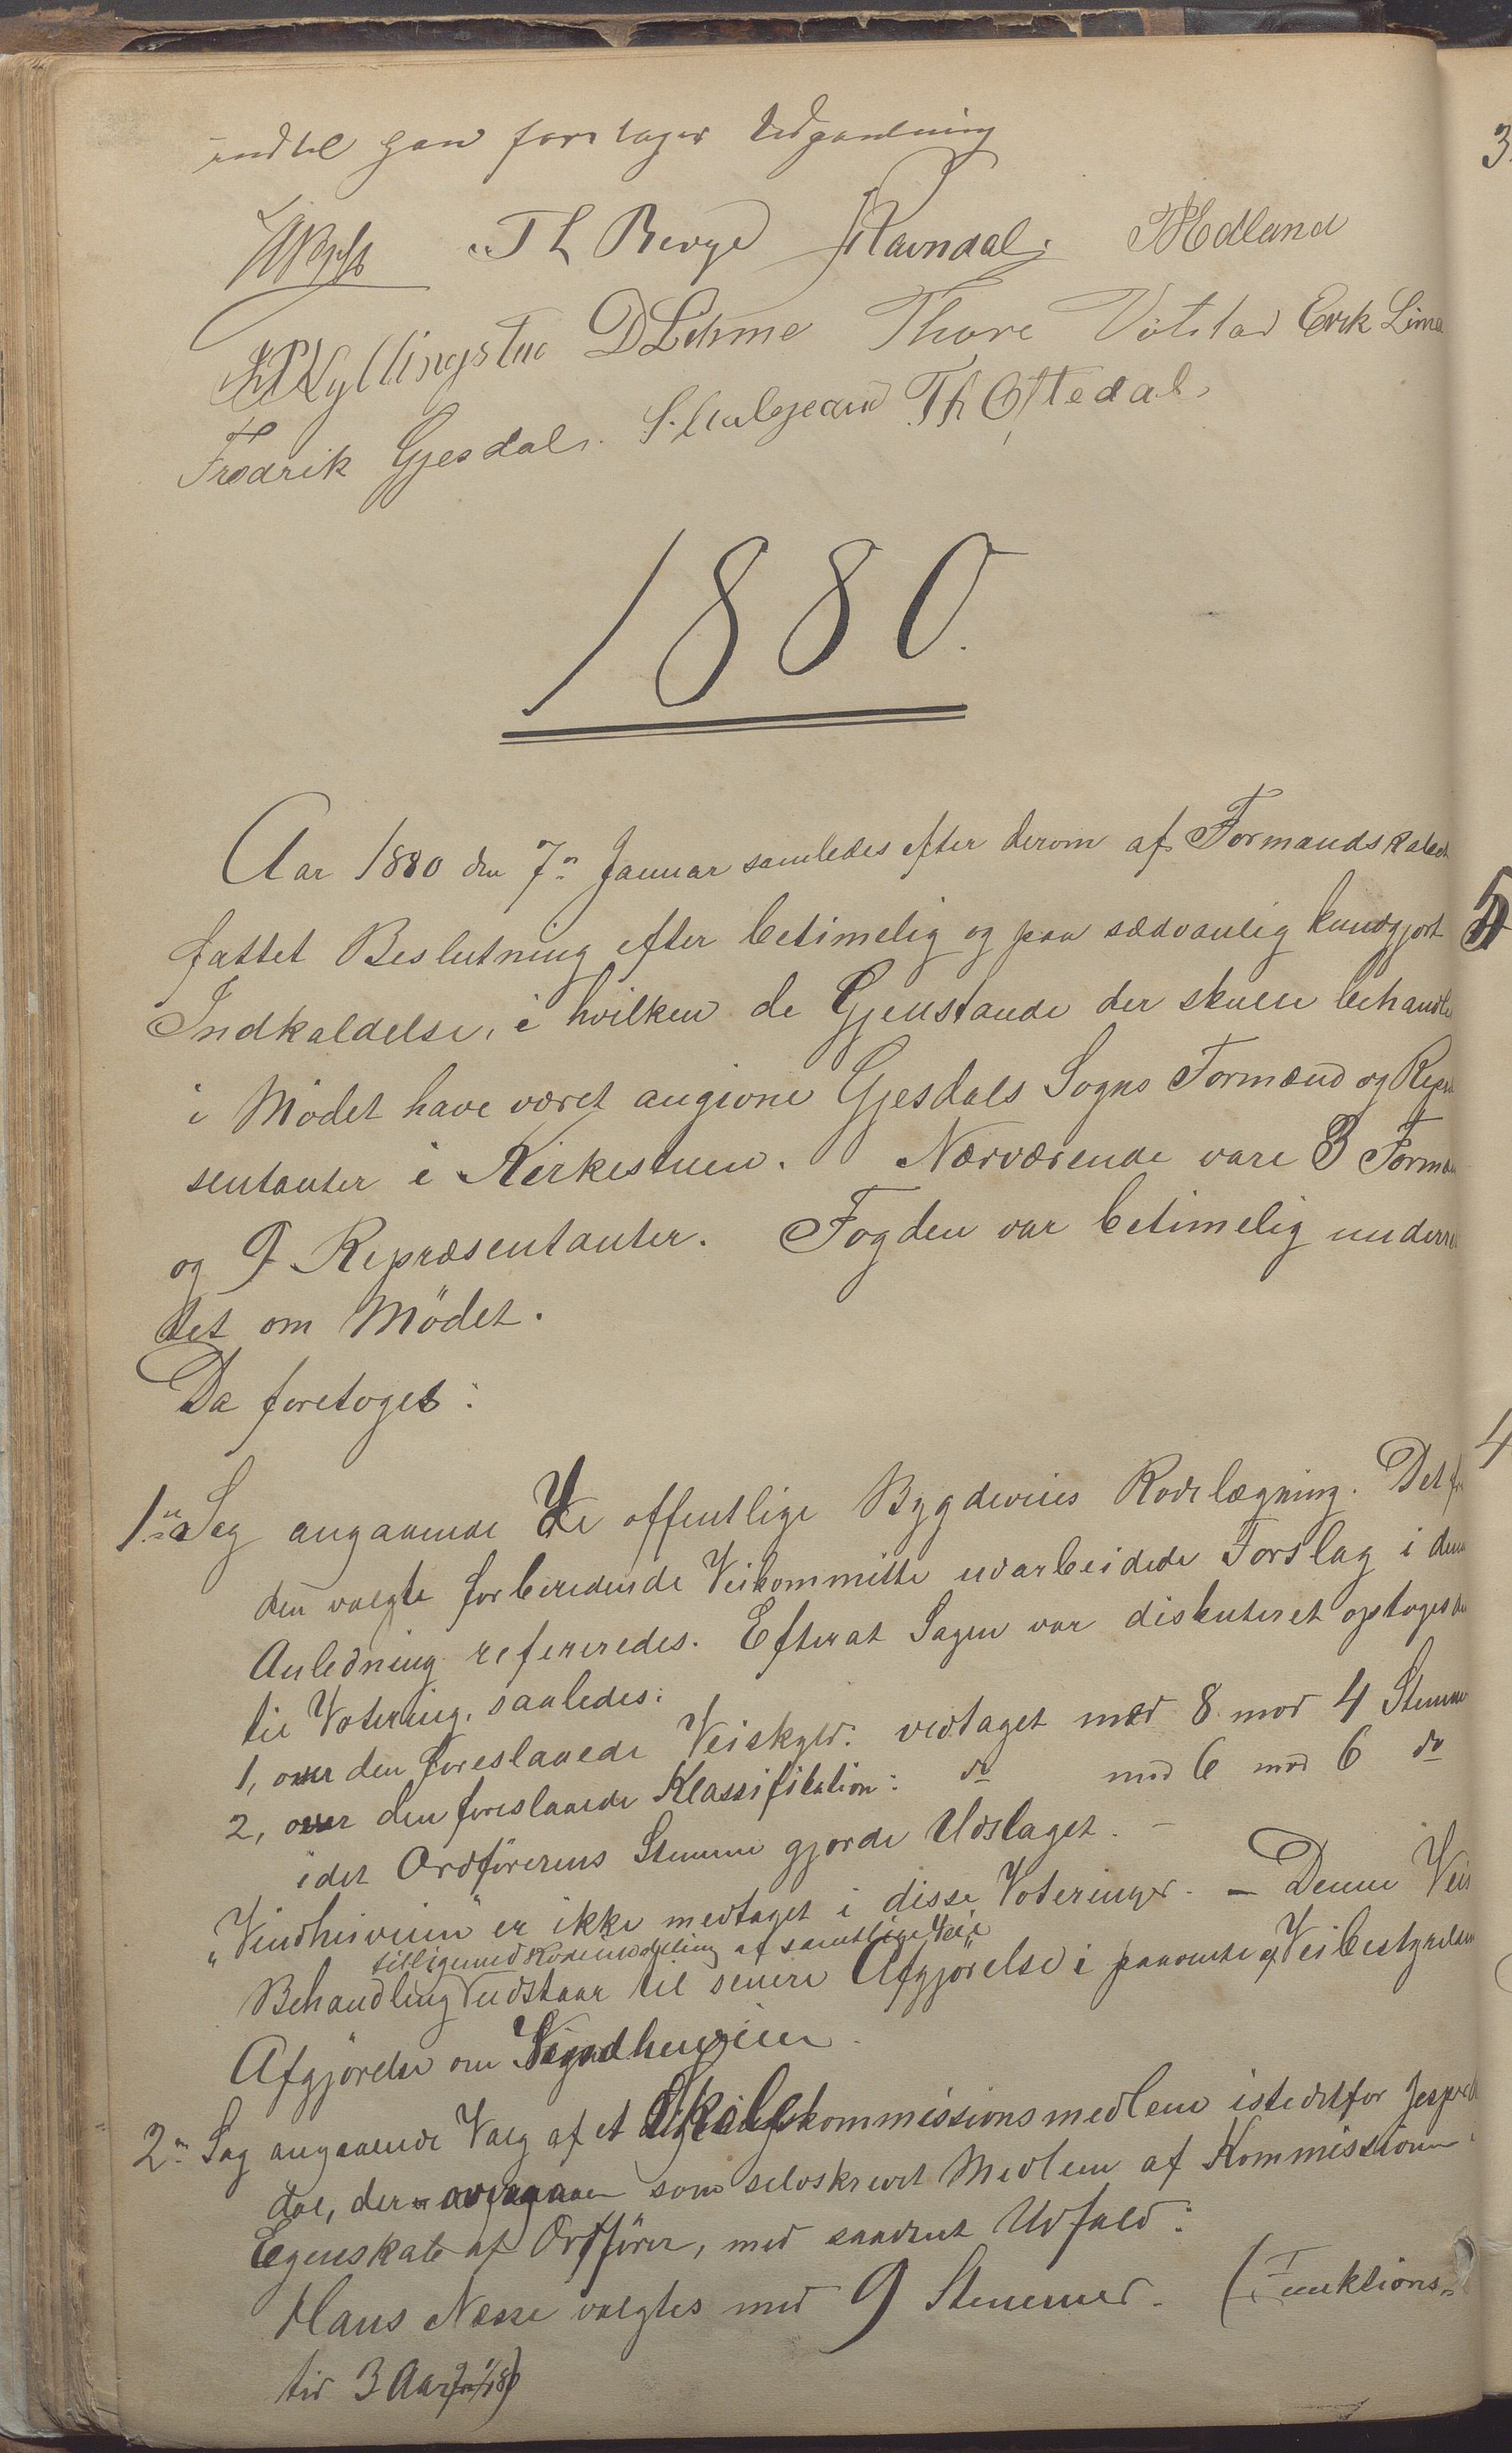 indtil han foretager Udgantning
Th Berge Ravndal. Medland
Kyllingstad D Lehme Thore Votstad Erik Lima
Fredrik Gjesdal. S. Aalgaard Th Oftedal.
1880.
Aar 1880 den 7de Januar samledes efter derom af Formandskabet
fattet Beslutning efter betimelig og paa sædvanlig kundgjort
Indkaldelse, i hvilken de Gjenstande der skulle behandle
i Mödet have været angivne Gjesdals Sogns Formænd og Repræ
sentanter i Kirkestuen. Nærværende vare 3 Formæ
og 9 Repræsentanter. Fogden var betimelig underre
tet om Mödet.
Da foretoges:
1. Sag angaaende De offentlige Bygdeveies Rodelægning. Det fr
den valgte forberedende Veikommitte udarbeidede Forslag i den
Anledning refereredes. Efterat Sagen var diskuteret optoges de
til Votering, saaledes:
1, over den foreslaaede Veiskyld: vedtaget med 8 mod 4 Stemme
2, over den foreslaaede Klassifikation: do med 6 mod 6 do
idet Ordförerens Stemme gjorde Udslaget. —
"Vindheiveien" er ikke medtaget i disse Voteringer. — Denne Veis
tilligemed Rodeinddeling af samtlige Veie
Behandling udstaar til senere Afgjörelse i paavente af Veibestyrelsen
Afgjörelse om Vindheiveien.
2. Sag angaaende Valg af et Skolekommissionsmedlem istedetfor Jesper
dal, der som selvskrevet Medlem af Kommissionen i
Egenskab af Ordförer, med saadant Udfald:
Hans Næsse valgtes med 9 Stemmer. (Funktions-
tid 3 Aar fra 1/1 80)
3.
5
4